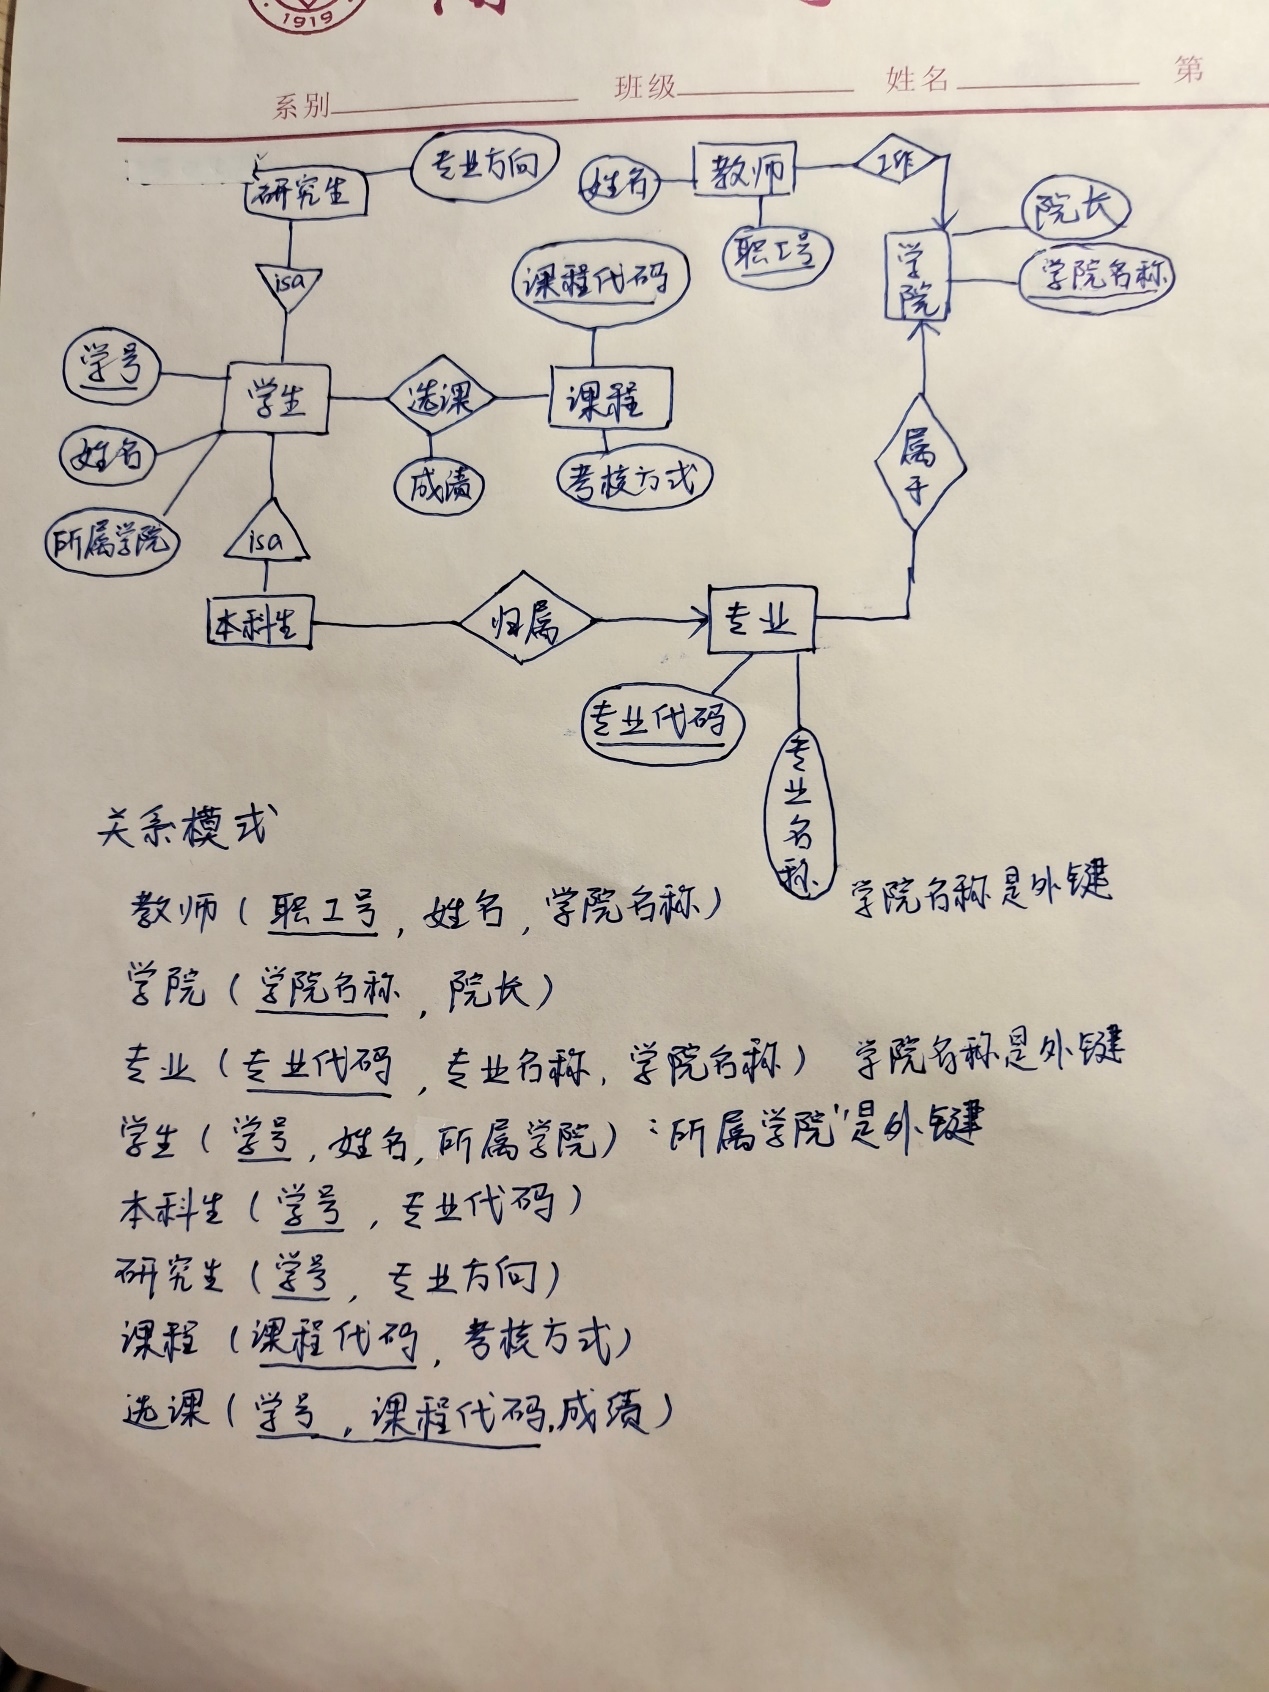 1919
系别 班级 姓名 第
研究生 专业方向 姓名 教师 工作
院长
职工号 学院 学院名称
课程代码
isa
学号 学生 选课 课程
姓名 成绩 考核方式 属于
所属学院 isa
本科生 归属 专业
专业代码
专业名称
关系模式
教师(职工号,姓名,学院名称) 学院名称是外键
学院(学院名称,院长)
专业(专业代码,专业名称,学院名称) 学院名称是外键
学生(学号,姓名,所属学院)"所属学院"是外键
本科生(学号,专业代码)
研究生(学号,专业方向)
课程(课程代码,考核方式)
选课(学号,课程代码,成绩)